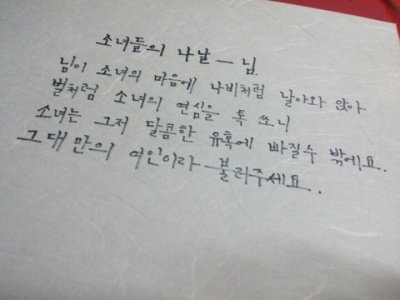 소녀들의 나날 — 님.
님이 소녀의 마음에 나비처럼 날아와 앉아
벌처럼 소녀의 연심을 톡 쏘니
소녀는 그저 달콤한 유혹에 빠질수 밖에요..
그대만의 여인이라 불러주세요..